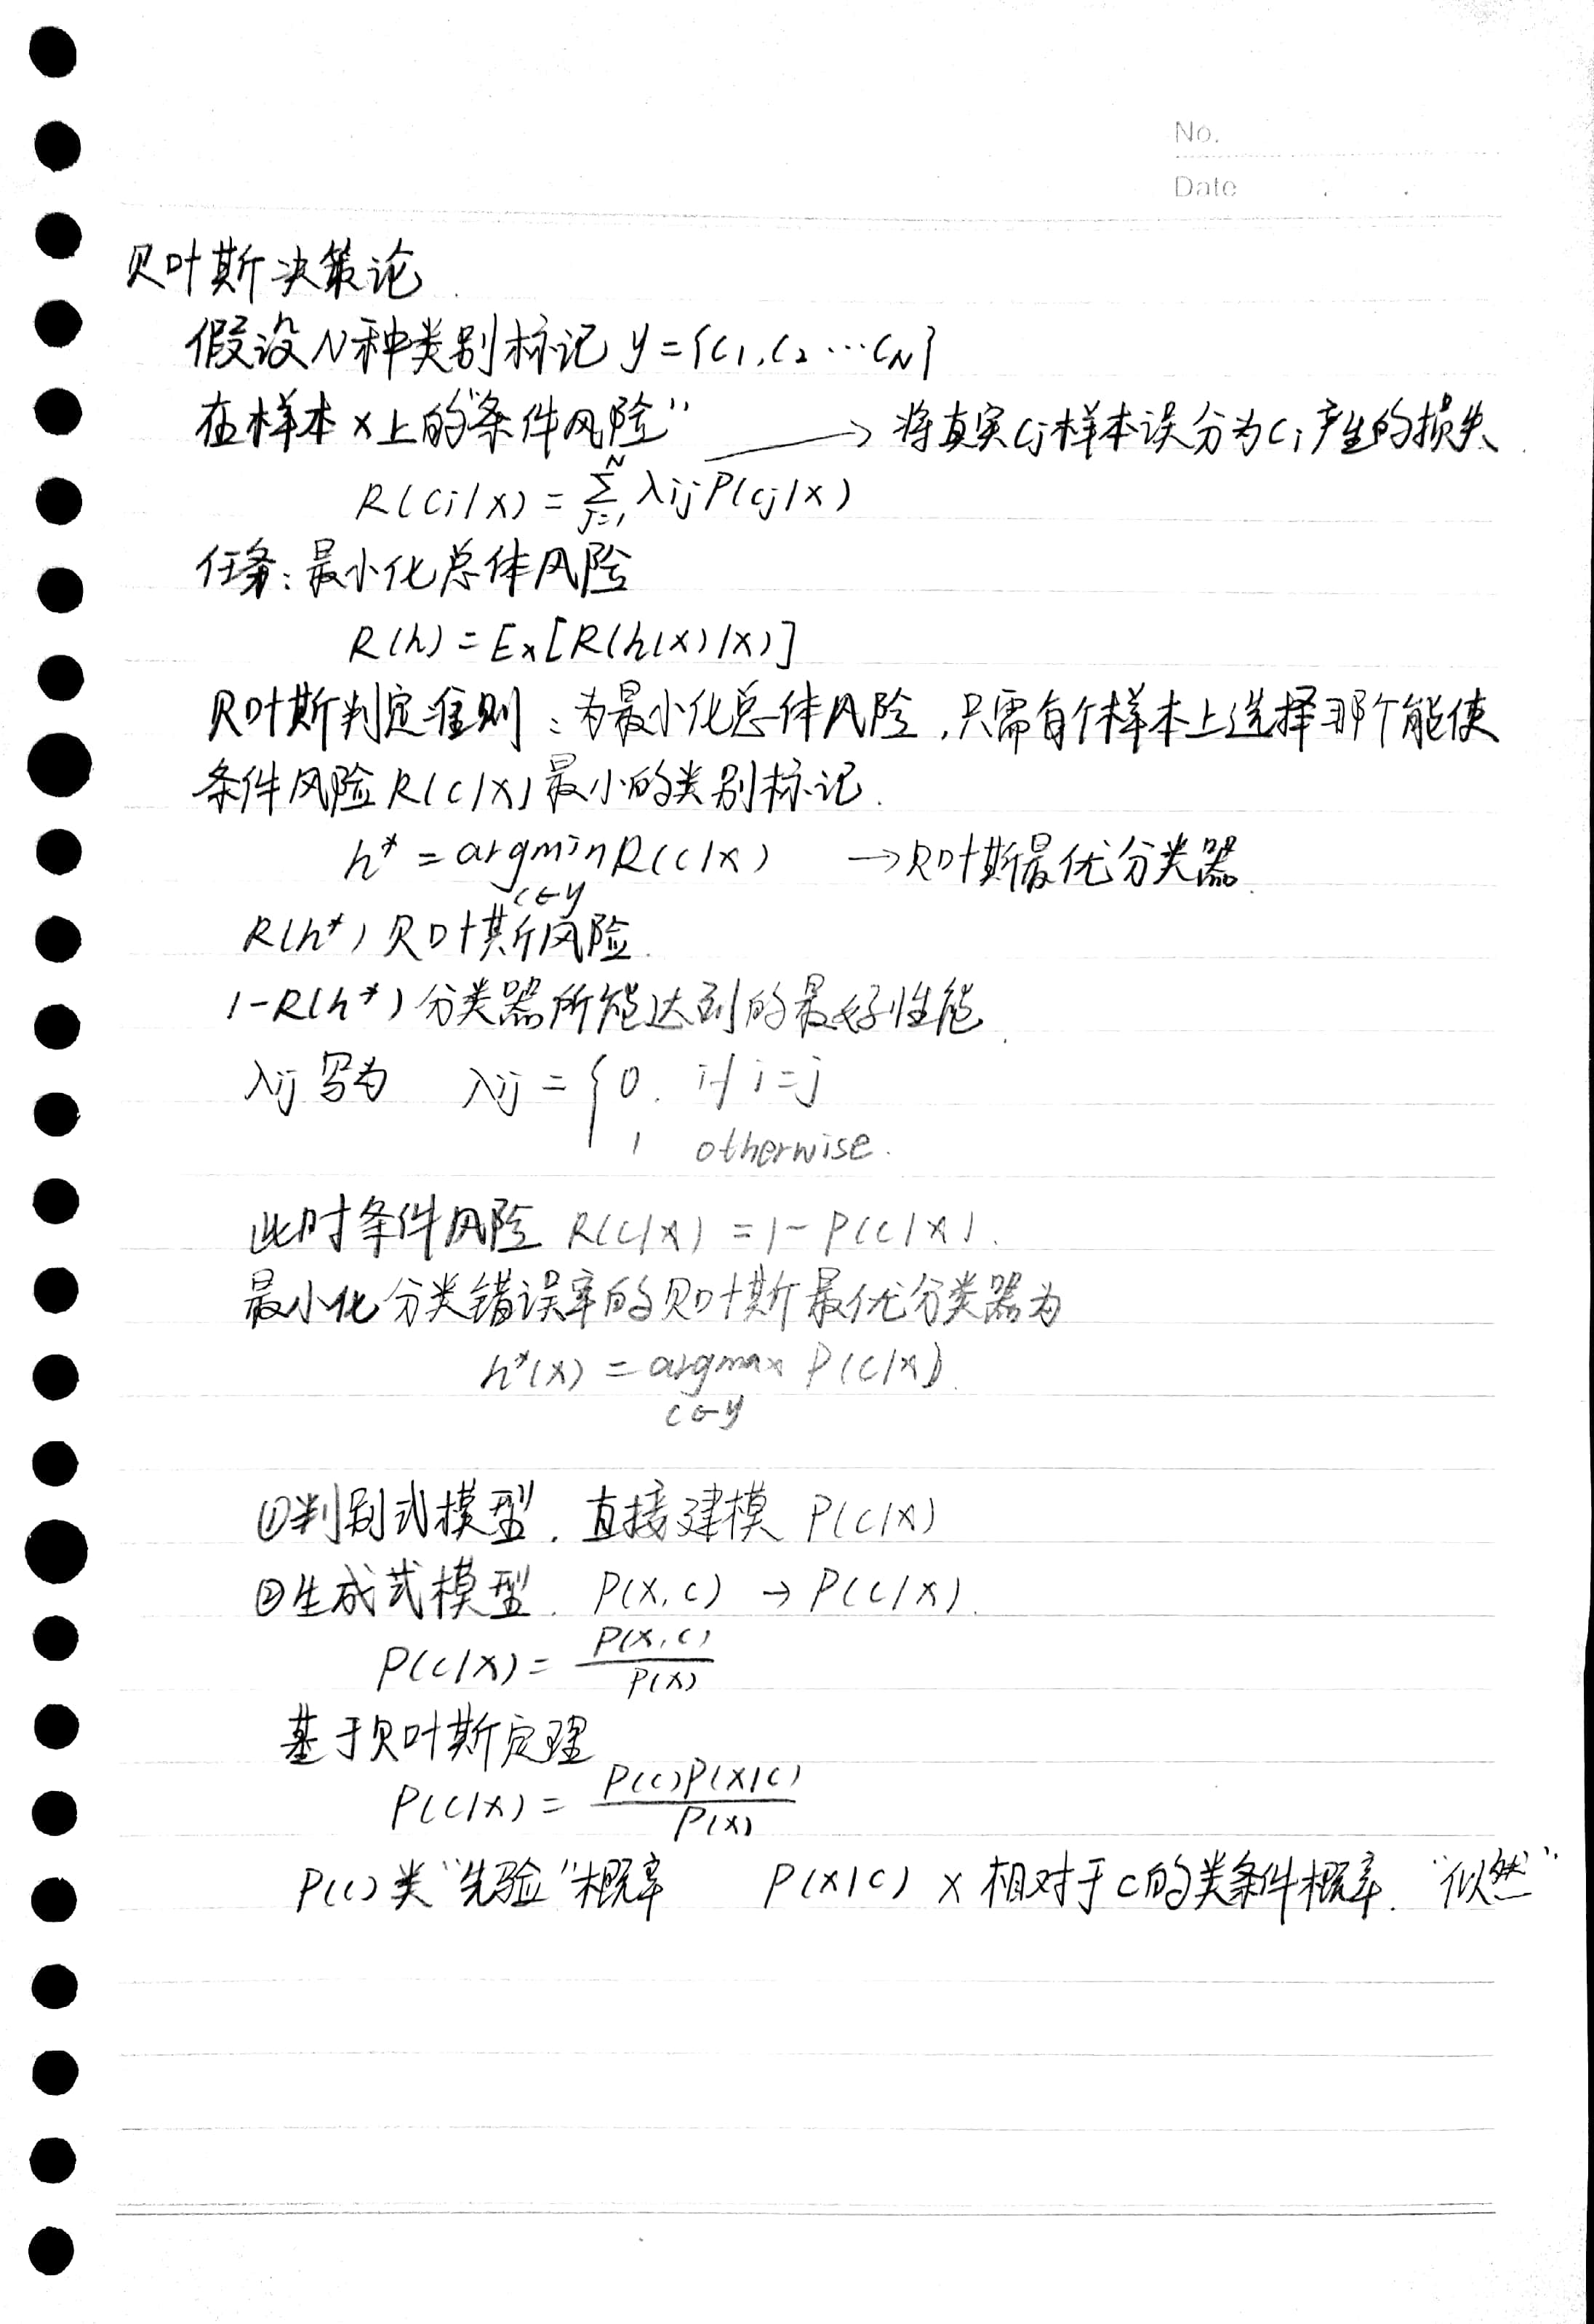 No.
Date
贝叶斯决策论
假设N种类别标记 y={c₁,c₂…c_N}
在样本x上的"条件风险" → 将真实cj样本误分为ci产生的损失
R(ci|x) = Σ_{j=1}^{N} λij P(cj|x)
任务:最小化总体风险
R(h) = Ex[R(h(x)|x)]
贝叶斯判定准则:为最小化总体风险,只需每个样本上选择那个能使
条件风险R(c|x)最小的类别标记.
h* = argmin R(c|x) →贝叶斯最优分类器.
c∈y
R(h*) 贝叶斯风险.
1-R(h*) 分类器所能达到的最好性能.
λij 写为 λij = { 0. if i=j
1 otherwise.
此时条件风险 R(c|x) = 1-P(c|x).
最小化分类错误率的贝叶斯最优分类器为
h*(x) = argmax P(c|x).
c∈y
①判别式模型. 直接建模 P(c|x)
②生成式模型. P(x,c) → P(c|x).
P(c|x) = P(x,c) / P(x)
基于贝叶斯定理
P(c|x) = P(c)P(x|c) / P(x)
P(c) 类"先验"概率 P(x|c) x 相对于c的类条件概率. "似然"